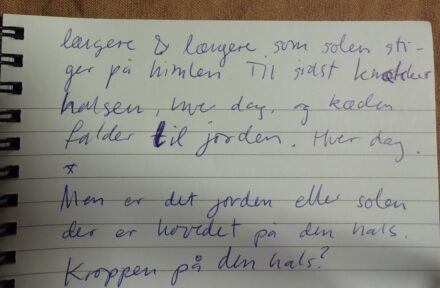 længere & længere, som solen sti-
ger på himlen. Til sidst knækker
halsen, hver dag, og kæden
falder til jorden. Hver dag.
*
Men er det jorden eller solen
der er hovedet på den hals.
Kroppen på den hals?